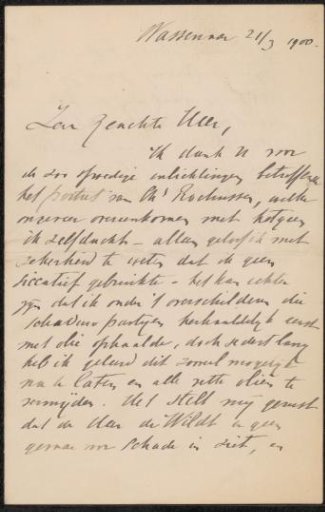 Wassenaar 21/3 1900.
Zeer Geachte Heer,
Ik dank U voor
de zoo spoedige inlichtingen betreffende
het portret van Chs Rochussen, welke
overeenkomen met hetgeen
ik zelf dacht - alleen geloof ik met
zekerheid te weten dat ik geen
siccatief gebruikte - het kan echter
zijn dat ik onder 't overschilderen die
schaduw partijen herhaaldelijk eerst
met olie ophaalde, doch sedert lang
heb ik geleerd dit zooveel mogelijk
na te laten en alle vette olien te
vermijden. Het stelt mij gerust
dat de Heer de Wildt er geen
gevaar voor schade in ziet, en